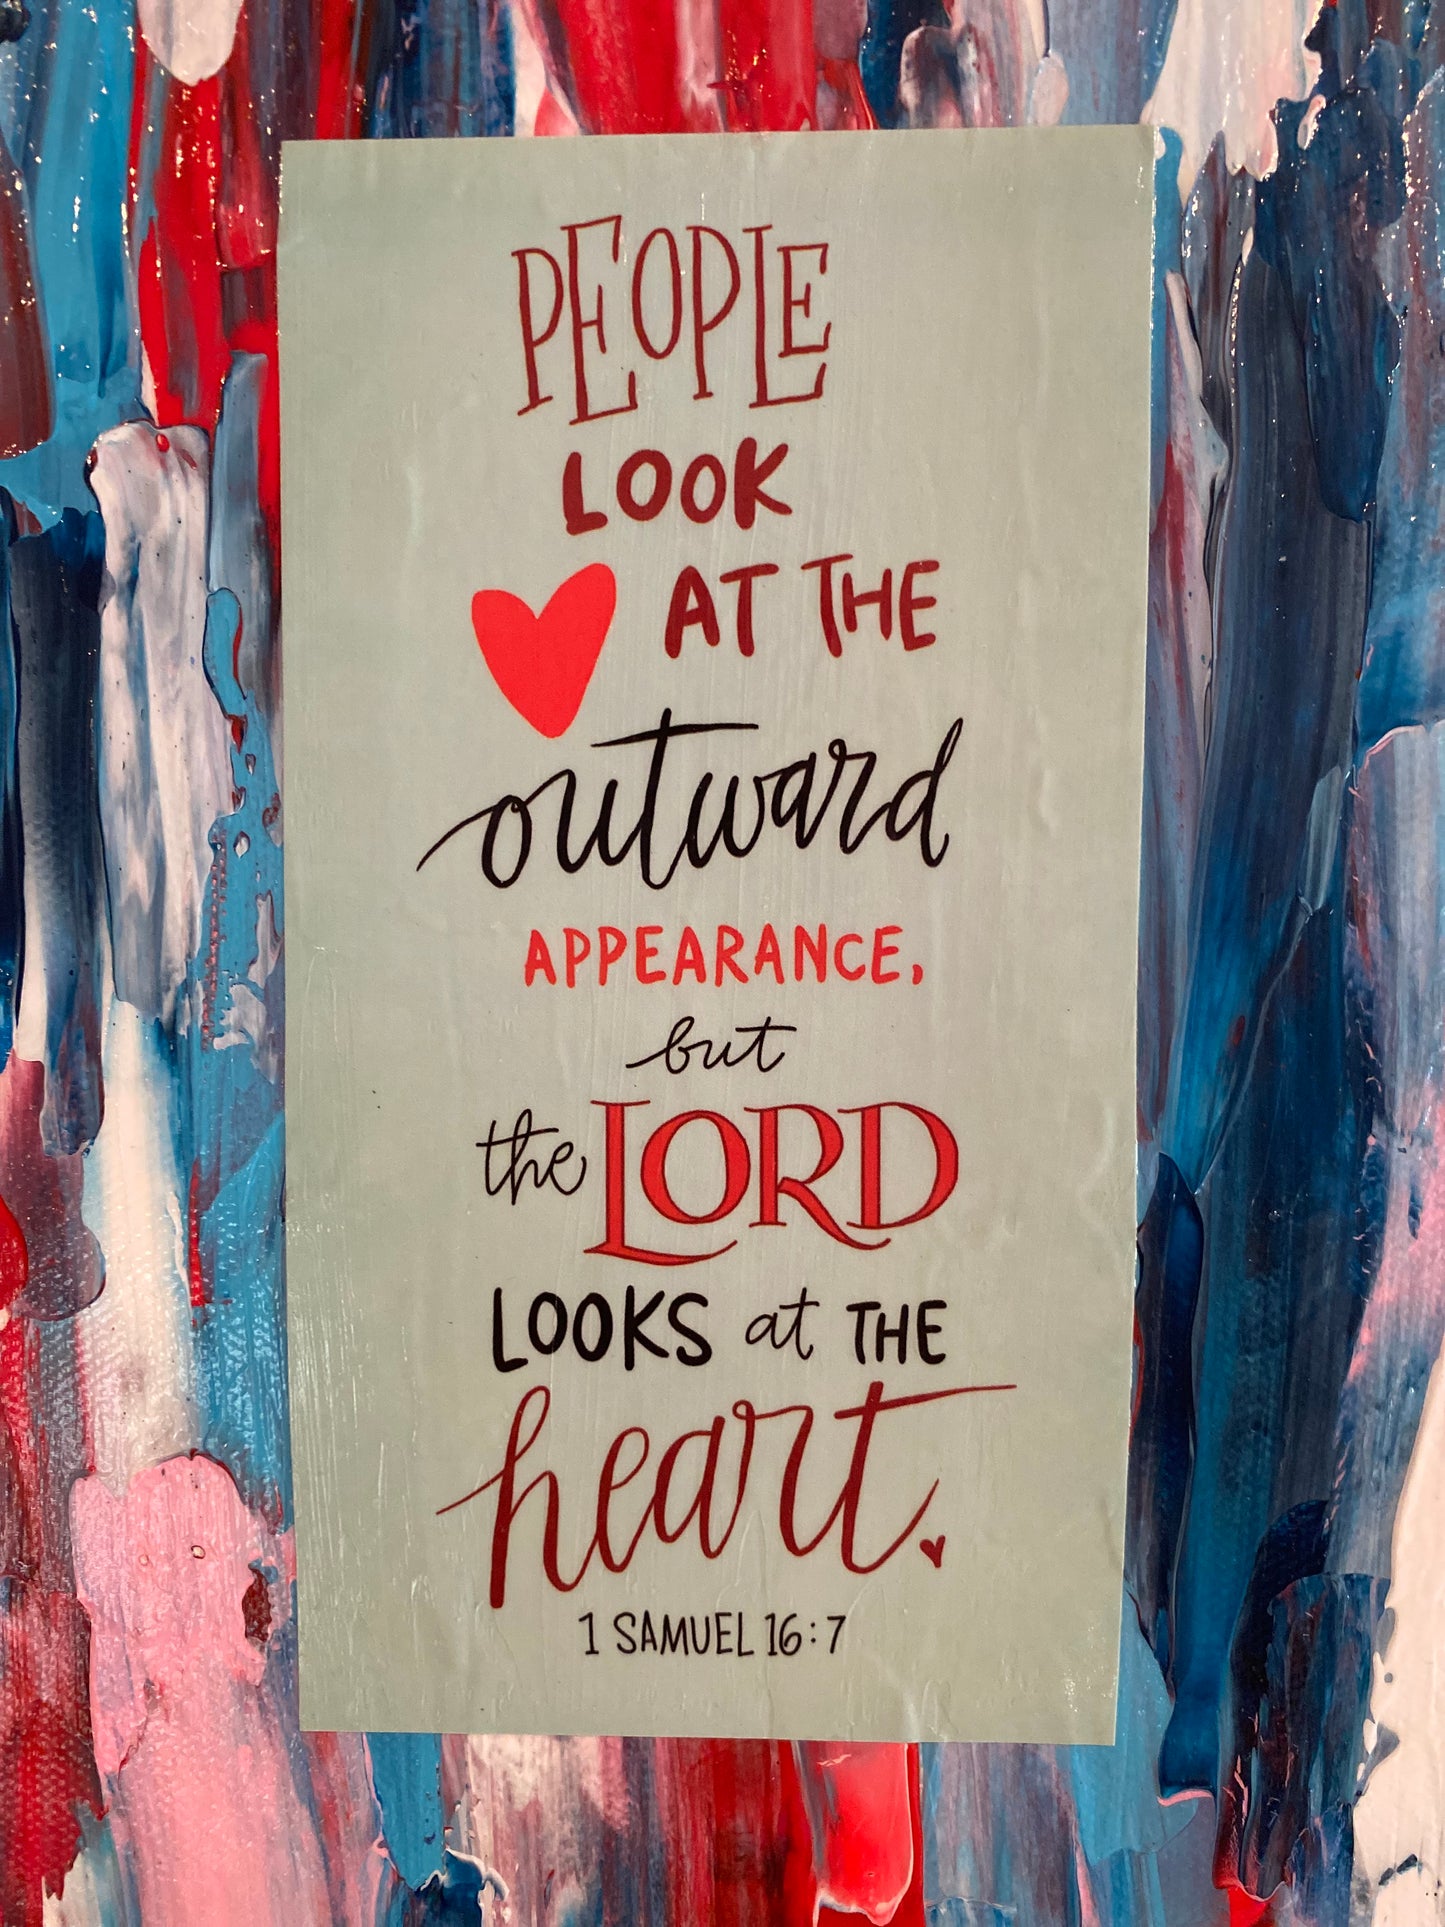 PEOPLE
LOOK
AT THE
outward
APPEARANCE,
but
the LORD
LOOKS at THE
heart.
1 SAMUEL 16:7